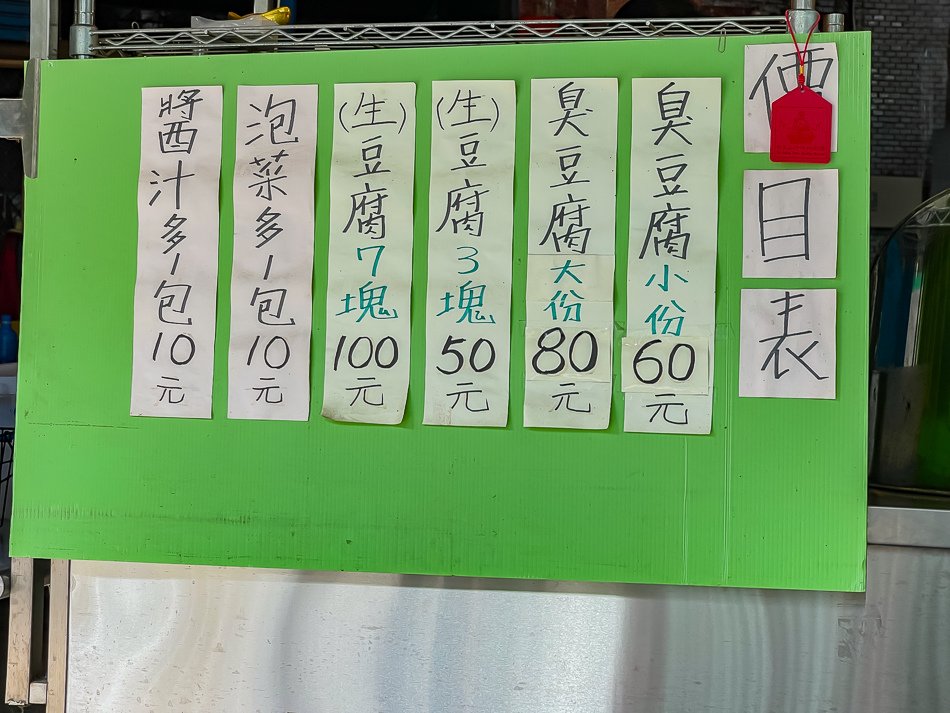 價目表
臭豆腐小份60元
臭豆腐大份80元
(生)豆腐3塊50元
(生)豆腐7塊100元
泡菜多1包10元
醬汁多1包10元